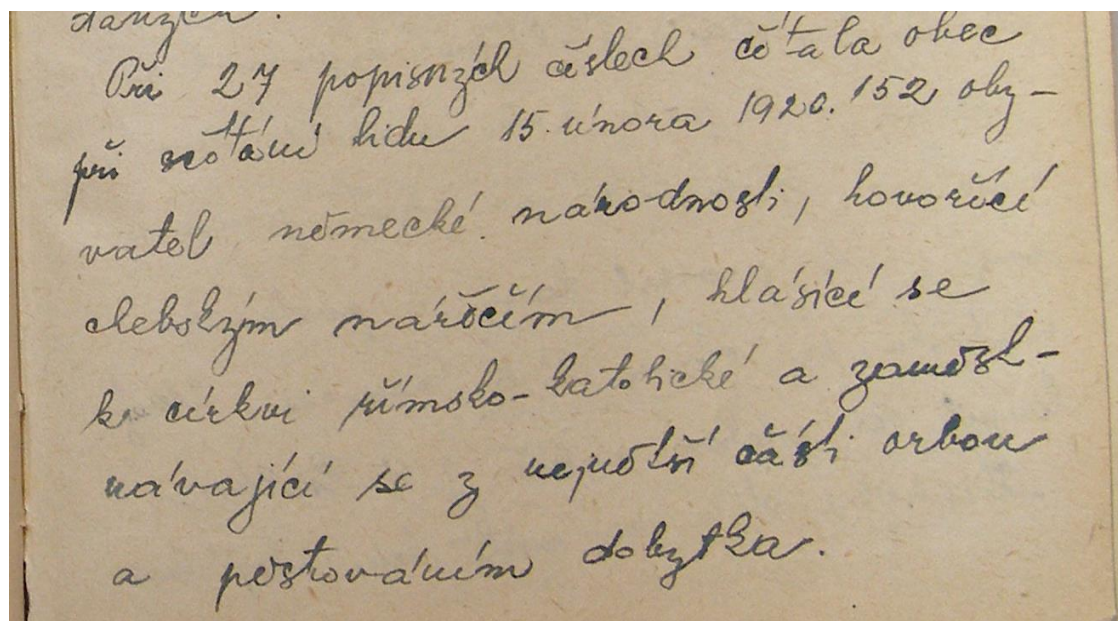 Při 27 popisných číslech čítala obec
při sčítání lidu 15. února 1920. 152 oby-
vatel německé národnosti, hovořící
chebským nářečím, hlásící se
k církvi římsko-katolické a zaměst-
návající se z největší části orbou
a pěstováním dobytka.